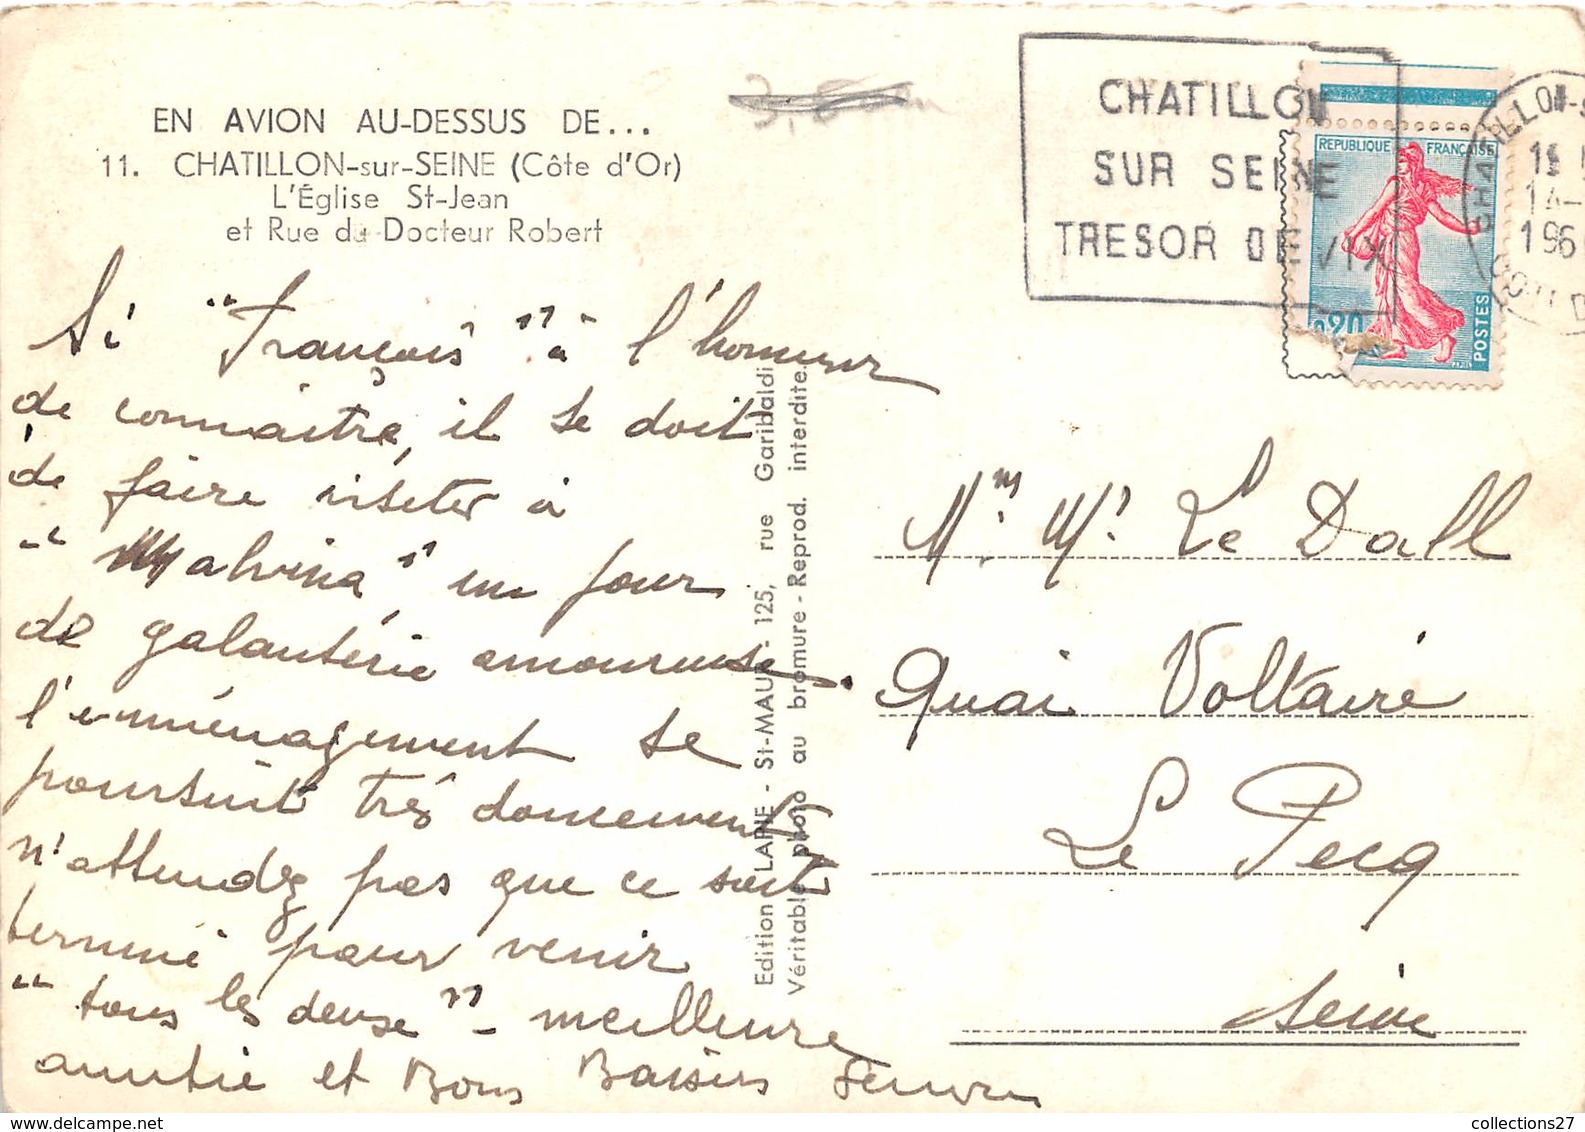 EN AVION AU-DESSUS DE...
11. CHATILLON-sur-SEINE (Côte d'Or)
L'Église St-Jean
et Rue du Docteur Robert
CHATILLON
SUR SEINE
TRESOR DE VIX
REPUBLIQUE FRANÇAISE
0,20
POSTES
CHATILLON-S
14-
196
COTE D
Si "François" à l'honneur
de connaître, il se doit
de faire visiter à
"Malvina" un jour
de galanterie amoureuse.
l'emménagement se
poursuit très doucement
n'attendez pas que ce soit
terminé pour venir
"tous les deuse" - meilleure
amitié et Bons Baisers
Edition LAPIE - St-MAUR - 125, rue Garibaldi
Véritable photo au bromure - Reprod. interdite.
Mm. Mr. Le Dall
Quai Voltaire
Le Pecq
Seine
collections27